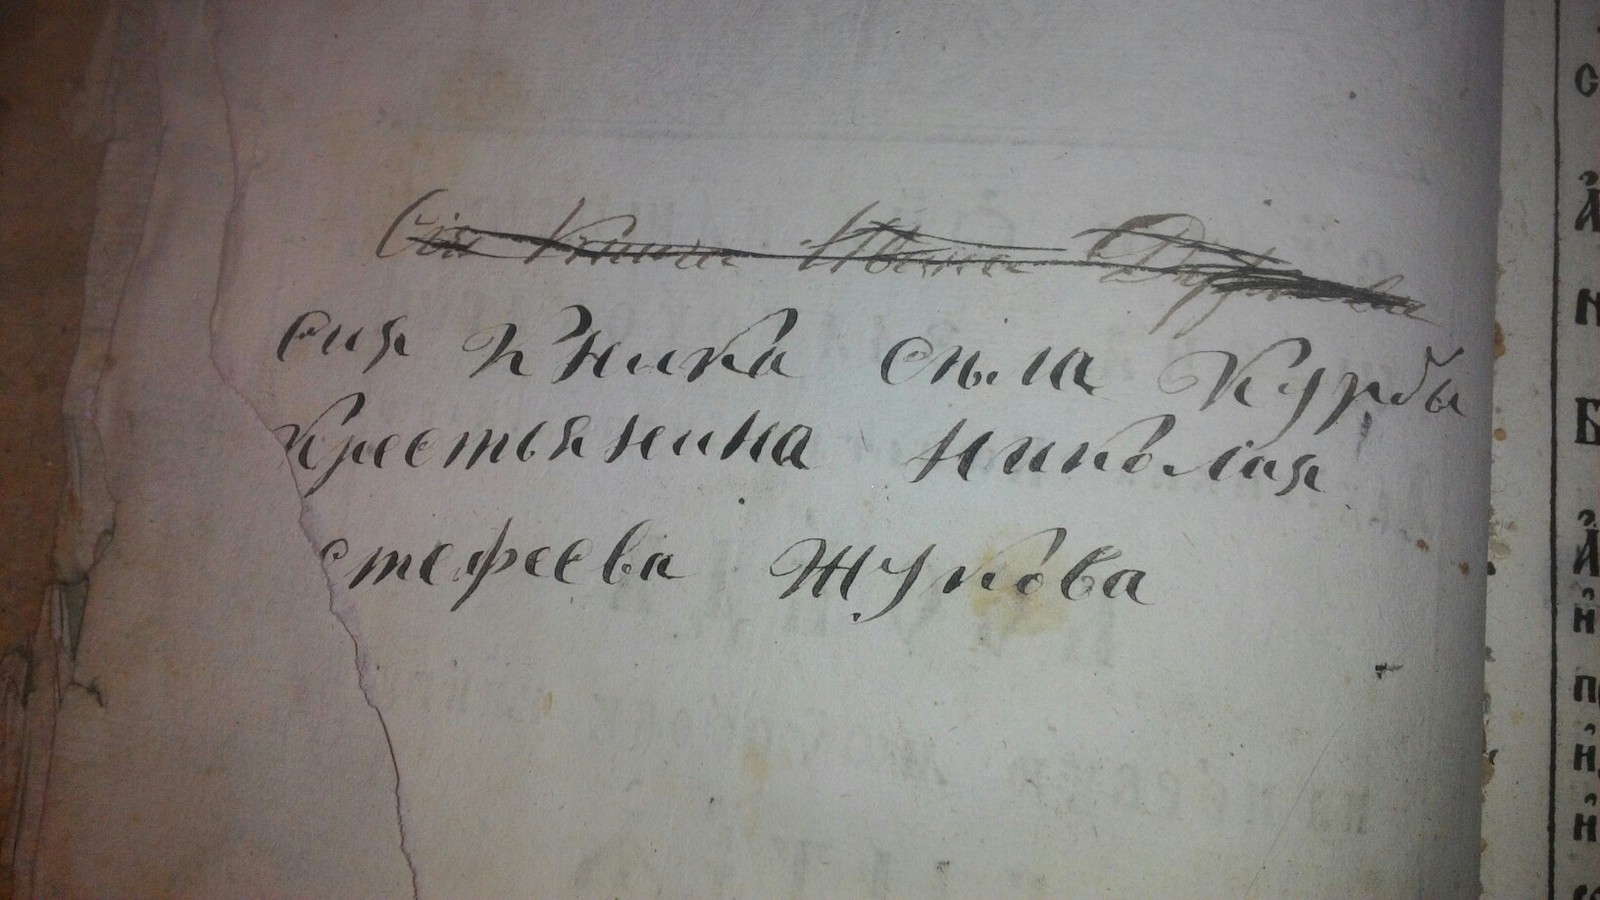 Сія Книга Ивана
сия Кника сѣла Курбы
Крестьянина Николая
стефеева Жукова